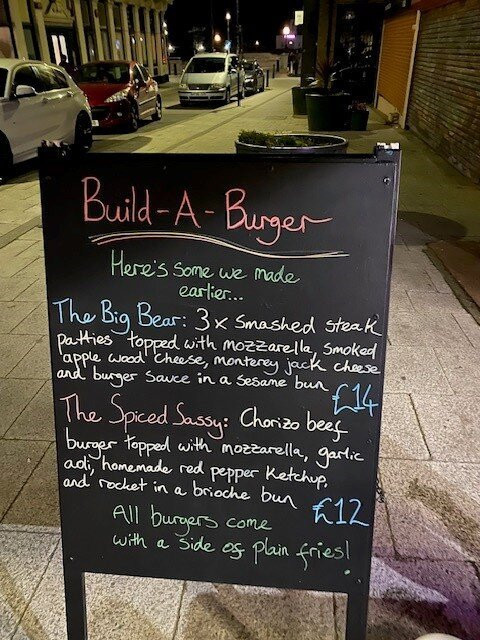 Build-A-Burger
Here's some we made
earlier...
The Big Bear: 3 x smashed steak
patties topped with mozzarella, smoked
apple wood cheese, monterey jack cheese
and burger sauce in a sesame bun
£14
The Spiced Sassy: Chorizo beef
burger topped with mozzarella, garlic
aoli, homemade red pepper ketchup,
and rocket in a brioche bun
£12
All burgers come
with a side of plain fries!